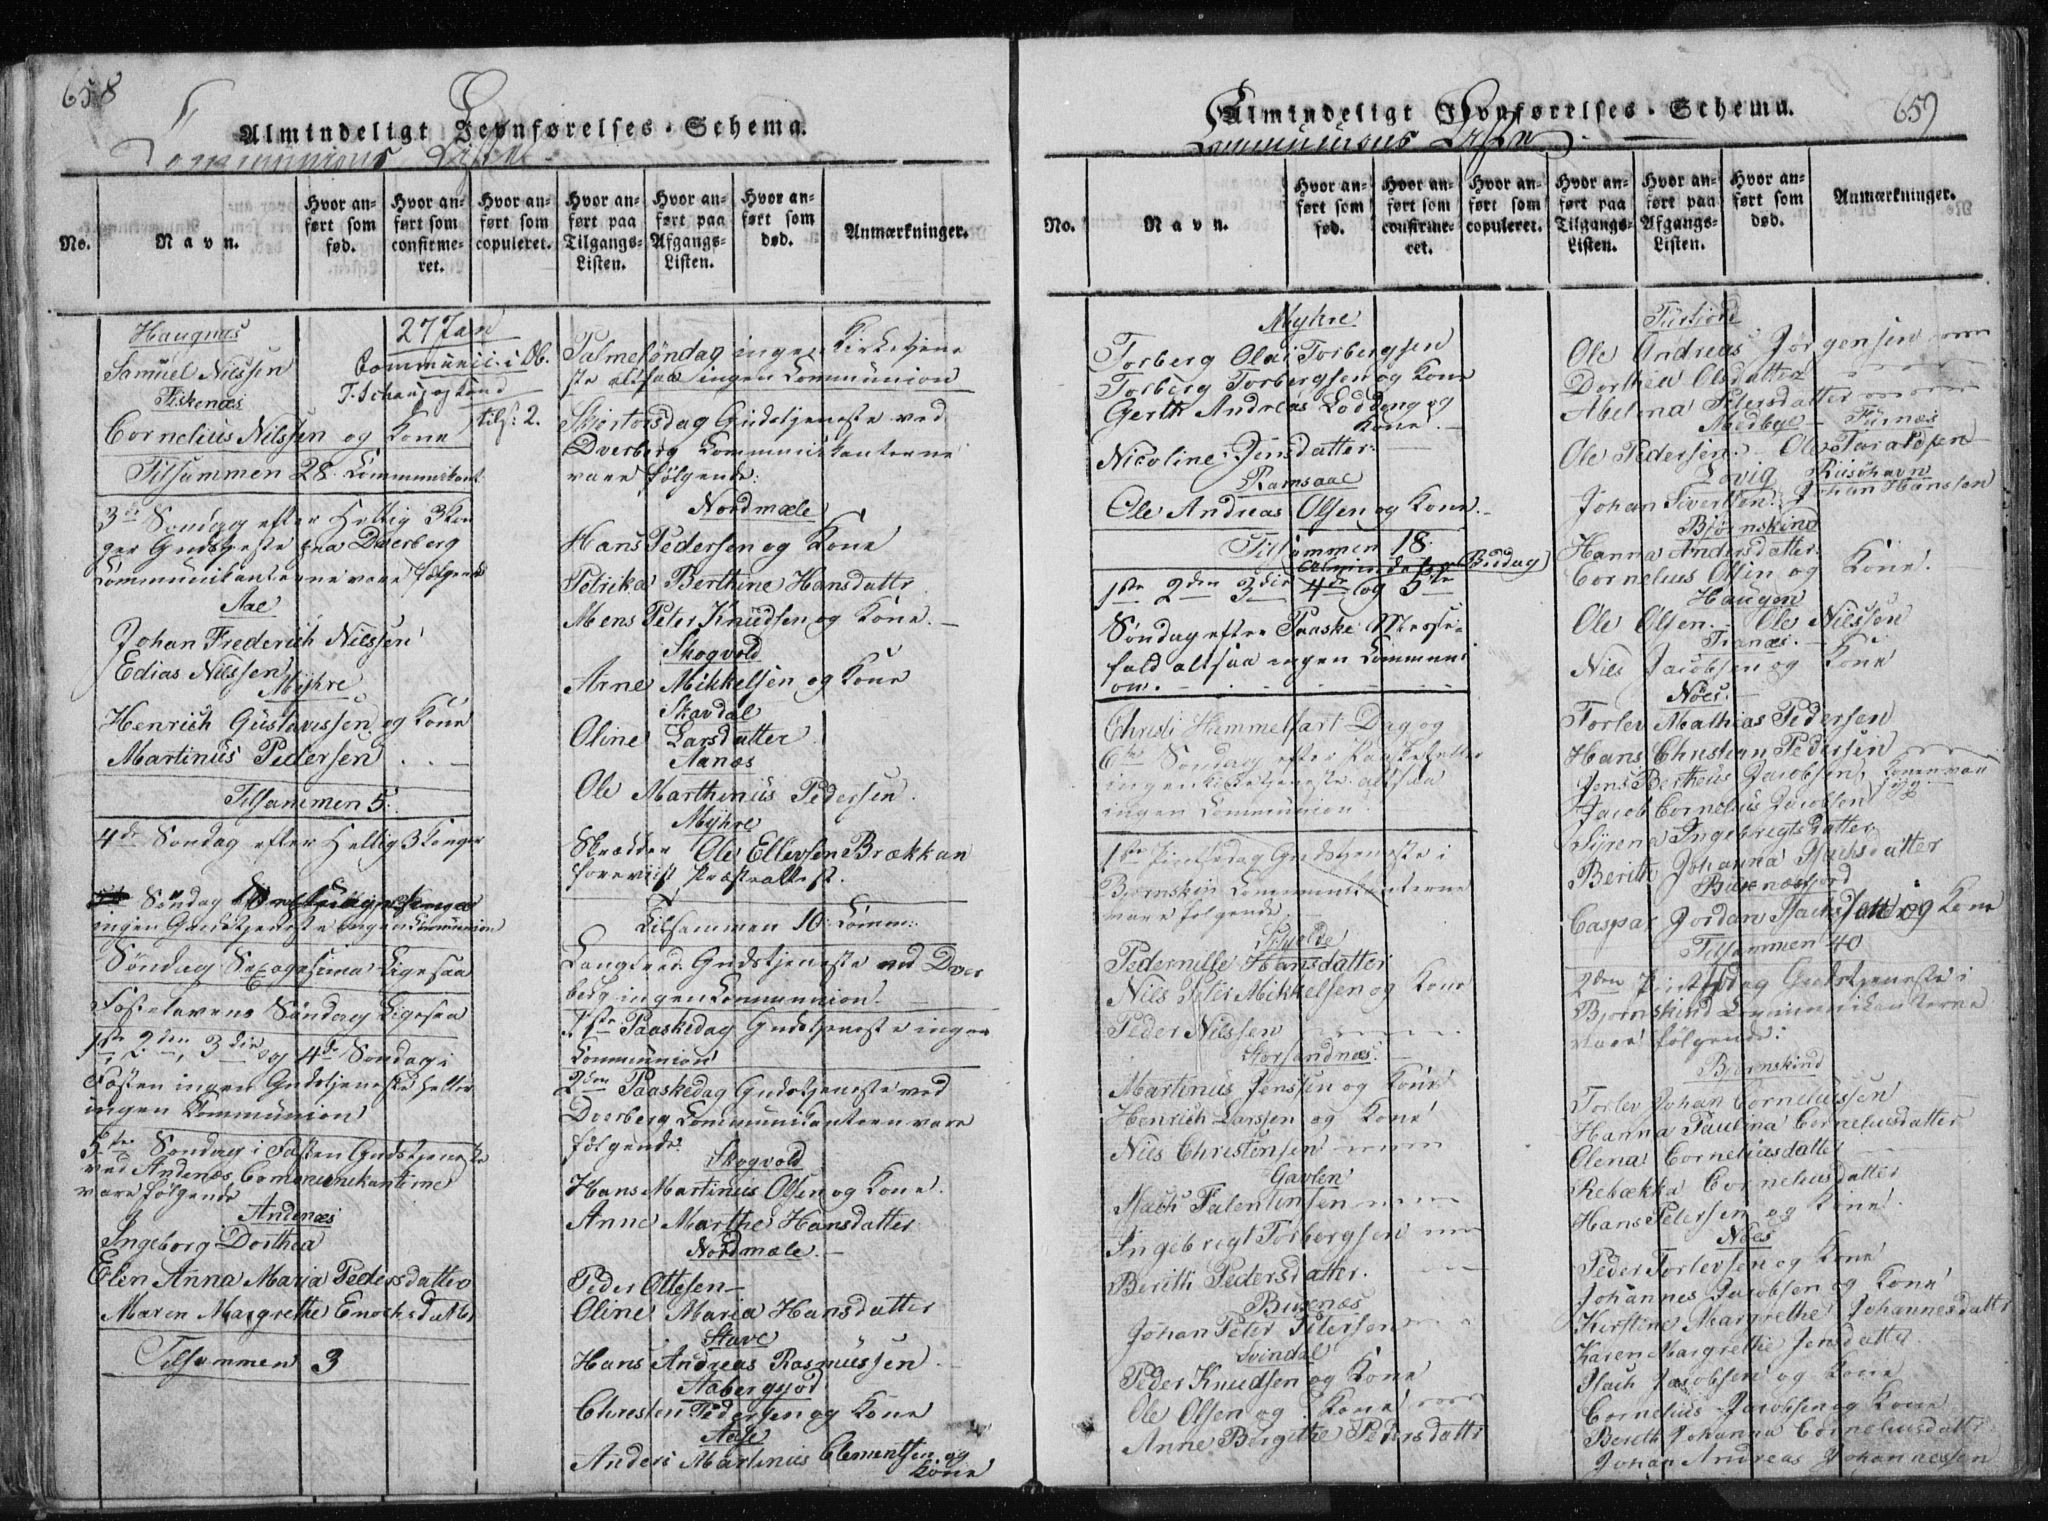 658
Almindeligt Jevnførelses-Schema.
Communions Listen
No.
Navn.
Hvor anført som fød.
Hvor anført som confirmeret.
Hvor anført som copuleret.
Hvor anført paa Tilgangs-Listen.
Hvor anført paa Afgangs-Listen.
Hvor anført som død.
Anmærkninger.
Haugnæs
Samuel Nilssen
Fiskenæs
Cornelius Nilssen og Kone
27 Jan
Communic. i Ob.
T. Schaug og Kone
tils: 2.
Tilsammen 28 Communikant
3de Søndag efter Hellig 3 Kon
ger Gudstjeneste paa Dverberg
Communikanterne vare følgende
Aae
Johan Frederich Nilssen
Edias Nilssen
Myhre
Henrich Gustavssen og Kone
Martinus Pedersen
Tilsammen 5.
4de Søndag efter Hellig 3 Konger
Søndag
ingen Gudstjeneste ingen Communion
Søndag Sexagesima Ligesaa
Fastelavens Søndag Ligesaa
1ste 2den, 3die og 4de Søndag i
Fasten ingen Gudstjeneste heller
ingen Communion
5te Søndag i Fasten Gudstjeneste
ved Andenæs Communikanterne
vare følgende
Andenæs
Ingeborg Dorthea
Elen Anna Maria Pedersdatter
Maren Margrethe Enochsdatter
Tilsammen 3
Palmesøndag ingen Kirketjene
ste altsaa ingen Communion
Skjertorsdag Gudstjeneste ved
Dverberg Communikanterne
vare følgende:
Nordmæle
Hans Pedersen og Kone
Petrika Berthine Hansdattr
Mens Peter Knudsen og Kone.
Skogvold
Arne Mikkelsen og Kone
Skavdal
Oline Larsdatter
Aanæs
Ole Marthinus Pedersen
Myhre
Skrædder Ole Ellevsen Brækkan
foreviist Præsteattest.
Tilsammen 10. Comm:
Langfred: Gudstjeneste ved Dver
berg ingen Communion.
1ste Paaskedag Gudstjeneste ingen
Communion
2den Paaskedag Gudstjeneste ved
Dverberg Communikanteren vare
følgende:
Skogvold
Hans Martinus Olsen og Kone.
Anne Marthe Hansdatter
Nordmæle
Peder Ottesen
Oline Maria Hansdatter
Stave
Hans Andreas Rasmussen
Aabergsjod
Christen Pedersen og Kone
Aase
Anders Martinus Clementsen og
Kone
659
Almindeligt Jevnførelses-Schema.
Communions Listen.
No.
Navn.
Hvor anført som fød.
Hvor anført som confirmeret.
Hvor anført som copuleret.
Hvor anført paa Tilgangs-Listen.
Hvor anført paa Afgangs-Listen.
Hvor anført som død.
Anmærkninger.
Myhre
Torberg Olai Torbergsen
Torberg Torbergsen og Kone
Gerth Andreas Lodding og
Kone.
Nicoline Jensdatter
Ramsaae
Ole Andreas Olsen og Kone.
Tilsammen 18.
(Almindelig Bededag)
1ste 2den 3die 4de og 5te
Søndag efter Paaske Messe-
fald altsaa ingen Communi
on.
Christi Himmelfart Dag og
6te Søndag efter Paaske heller
ingen Kirketjeneste altsaa
ingen Communion
1ste Pintsedag Gudstjeneste i
Bjørnskin Communikanterne
vare følgende
Pedernille Hansdatter
Nils Peter Mikkelsen og Kone
Peder Nilssen
Storsandnæs.
Martinus Jenssen og Kone
Henrich Larssen og Kone
Nils Christensen
Gavlen
Isach Falentinsen
Ingebrigt Torbergsen
Berith Pedersdatter.
Buxnæs
Johan Peter Petersen
Svindal
Peder Knudsen og Kone
Ole Olsen og Kone
Anne Bergithe Pedersdattr
Ole Andreas Jørgensen
Dorthea Olsdatter
Abelina Petersdatter
Medbye — Furnæs
Ole Pedersen. — Ole Taraldsen
Lovig Risøhavn
Johan Sivertsen. Johan Hanssen
Bjørnskind
Hanna Andersdatter
Cornelius Olsen og Kone.
Haugen
Ole Olsen. — Ole Nielssen
Tranæs.
Nils Jacobsen og Kone
Nöes
Torlev Mathias Pedersen
Hans Christian Pedersen
Jens Bertheus Jacobsen, Konen var
syg
Jacob Cornelius Jacobsen
Syrena Ingebrigtsdatter
Berith Johanna Isachsdatter
Buxnæsfjord
Caspar Jordan Isachsen og Kone
Tilsammen 40
2den Pintsedag Gudstjeneste i
Bjørnskind Communikanterne
vare følgende:
Bjørnskind
Torlev Johan Corneliussen
Hanna Paulina Corneliusdatter
Olena Corneliusdatter
Rebækka Corneliusdatter
Hans Petersen og Kone.
Nöes
Peder Torlevsen og Kone
Johannes Jacobsen og Kone
Kirstine Margrethe Johannesdattr
Karen Margrethe Jensdatter
Isach Jacobsen og Kone
Cornelius Jacobsen og Kone
Bereth Johanna Corneliusdattr
Johan Andreas Johannessen